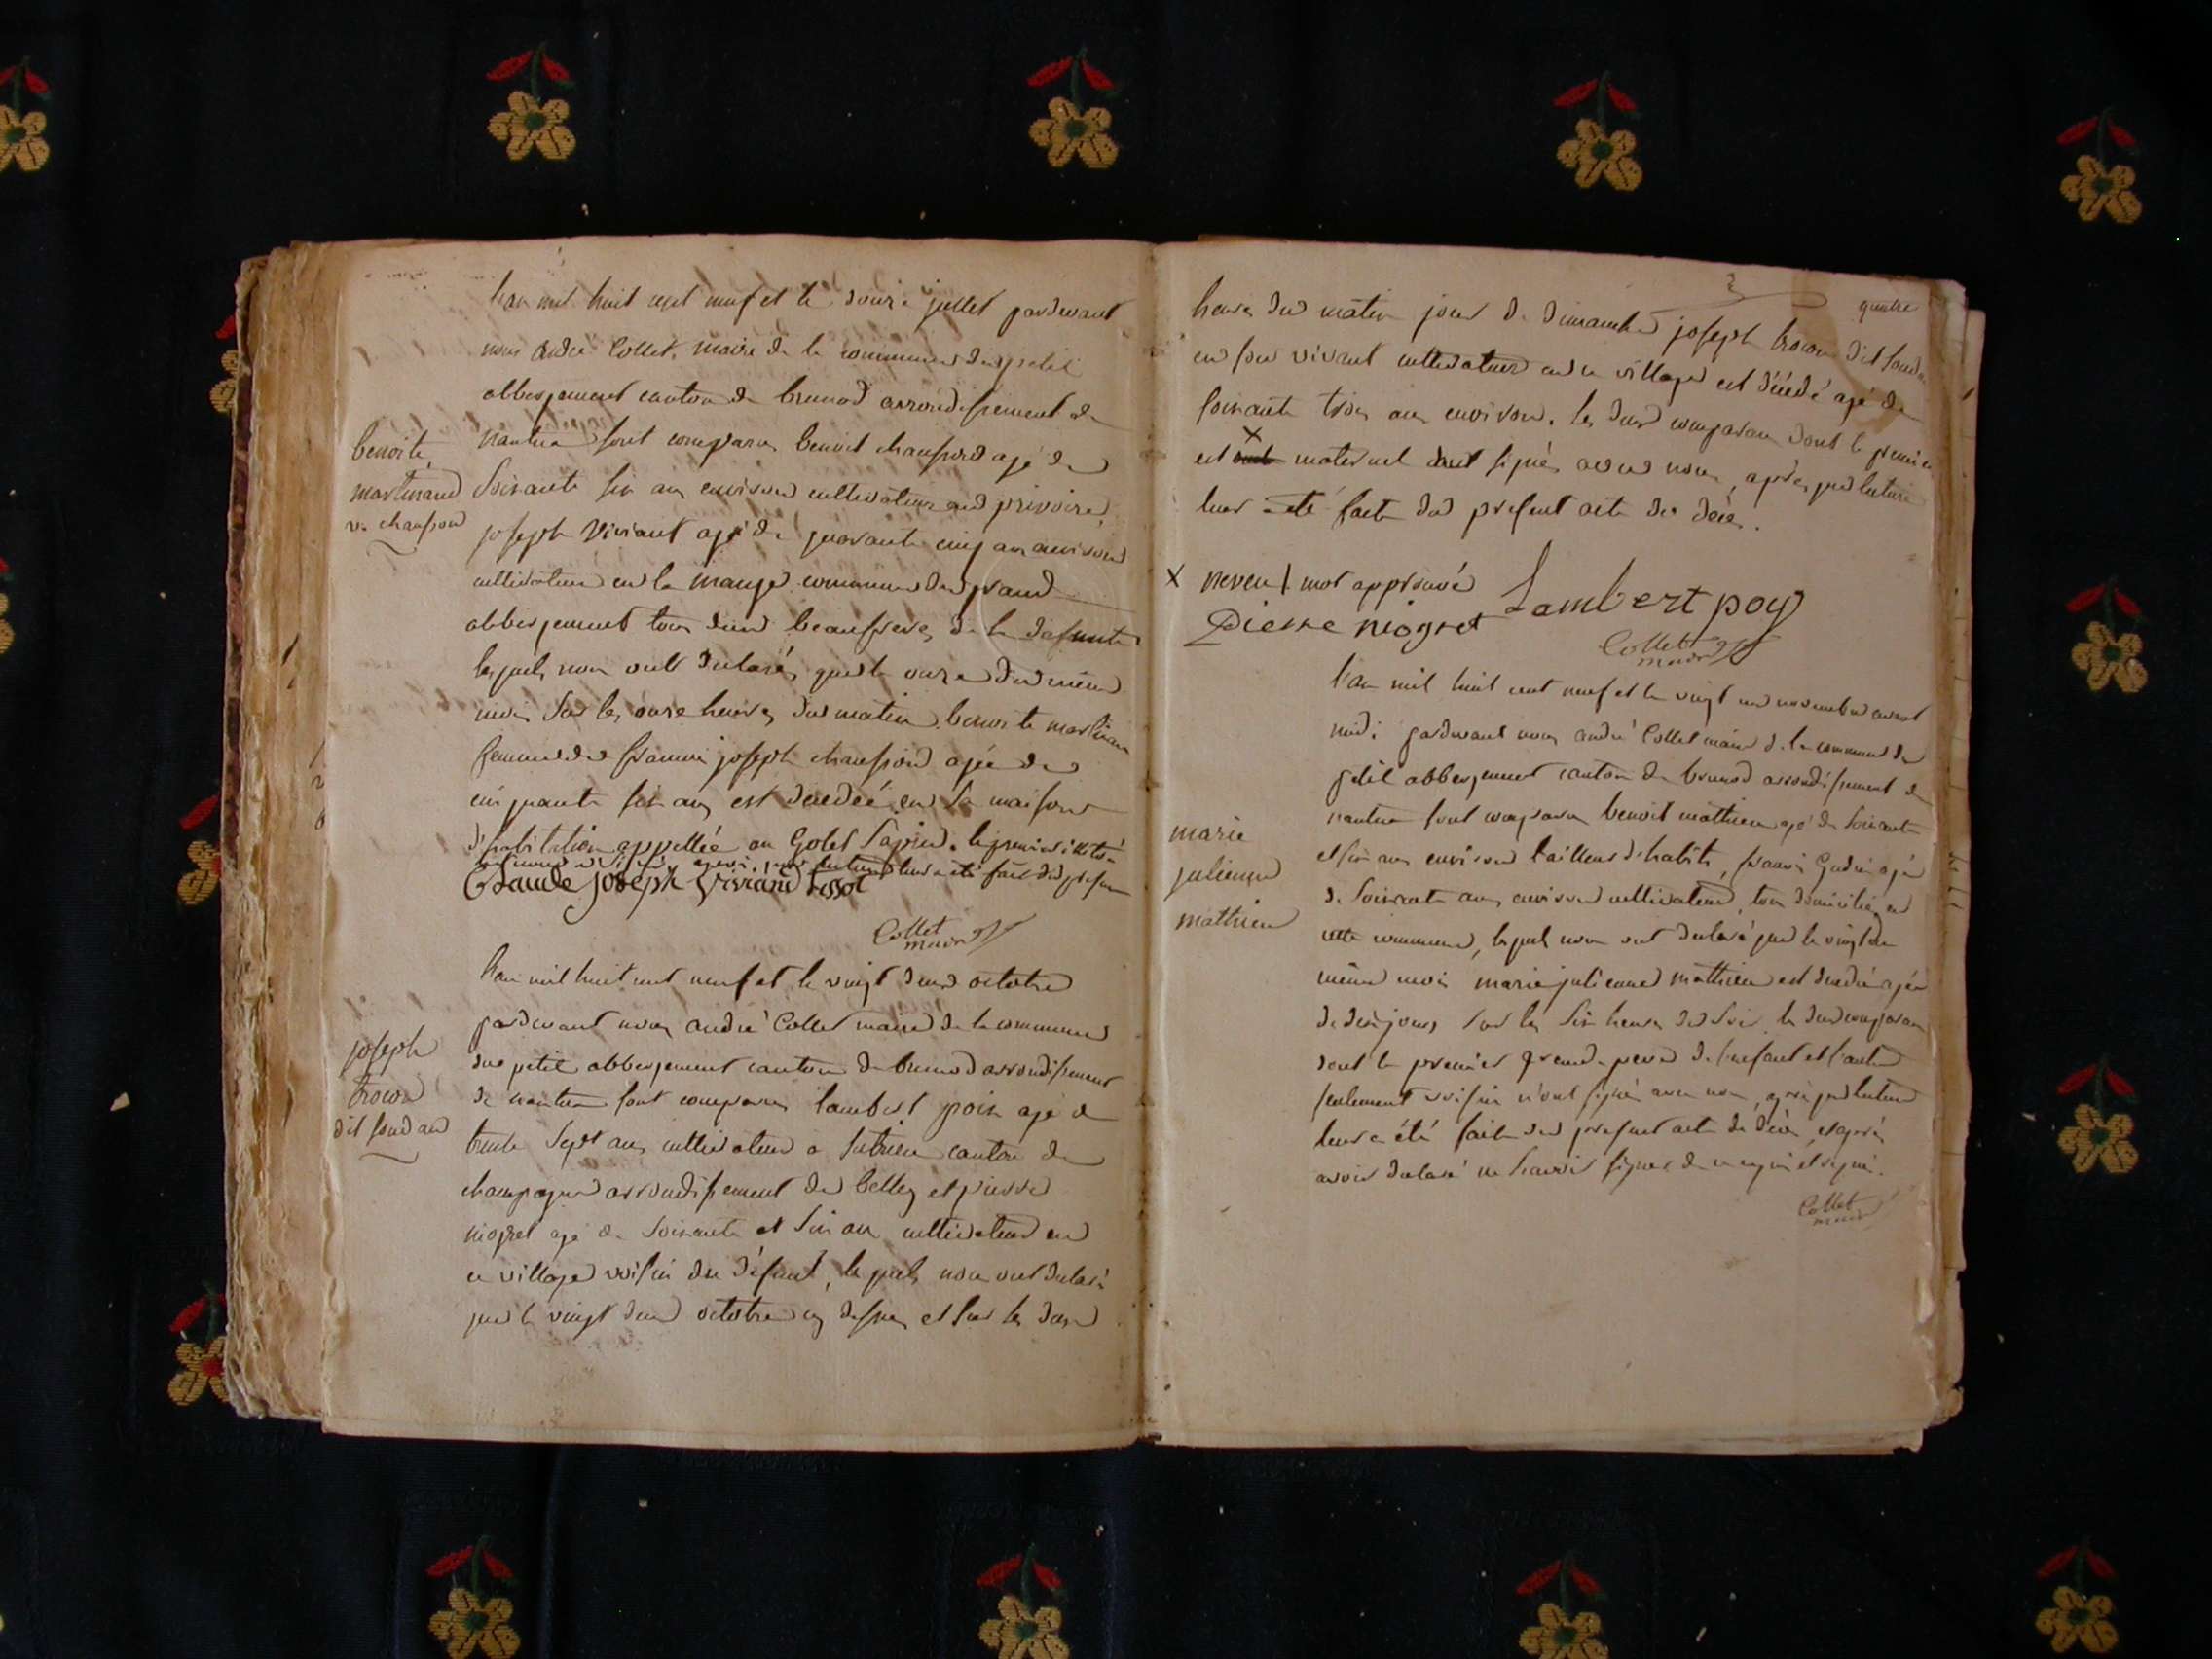 l'an mil huit cent neuf et le douze juillet pardevant
nous andré Collet, maire de la commune du petit
abbergement canton de brenod arrondissement de
nantua sont comparus benoit chanfrond agé de
soixante six ans environ cultivateur
joseph Viviant agé de quarante cinq ans environ
cultivateur en la mange commune du grand
abbergement tous deux beaufreres de la defunte
lesquels nous ont declarés que le onze du même
mois sur les onze heures du matin benoite martinand
femme de francois joseph agée de
cinquante six ans est decedée en sa maison
d'habitation appellée au Golet Sapin. le premier illitéré
après que lecture leur a été fait du présent
Claude joseph Viviand tissot
Collet
maire
benoite
martinand
l'an mil huit cent neuf et le vingt deux octobre
pardevant nous andré Collet maire de la commune
du petit abbergement canton de brenod arrondissement
de nantua sont comparus lambert poix agé de
trente sept ans cultivateur a Sutrieu canton de
champagne arrondissement de belley et pierre
niogret agé de soixante et six ans cultivateur en
ce village voisin du défunt, lesquels nous ont declaré
que le vingt deux octobre et sur les deux
joseph
trocon
dit
quatre
heures du matin jour de dimanche joseph trocon dit
en son vivant cultivateur en ce village est décédé agé de
soixante trois ans environ. les deux comparans dont le premier
est maternel ont signés avec nous, après que lecture
leur a été faite du present acte de décès.
X neveu 1 mot approuvé
Lambert poy
Pierre niogret
Collet
maire
l'an mil huit cent neuf et le vingt un novembre avant
midi pardevant nous andré Collet maire de la commune du
petit abbergement canton de brenod arrondissement de
nantua sont comparus benoit mathieu agé de soixante
et six ans environ tailleur d'habits, francois agé
de soixante ans environ cultivateur, tous domiciliés en
cette commune, lesquels nous ont declaré que le vingt du
même mois marie julienne mathieu est decedée agée
de dix jours sur les six heures du soir les deux comparans
dont le premier grand-pere de l'enfant et l'autre
seulement voisin n'ont signé avec nous, après que lecture
leur a été faite du present acte de décès, et après
avoir declaré ne savoir signer de ce requis et signé.
Collet
maire
marie
julienne
mathieu